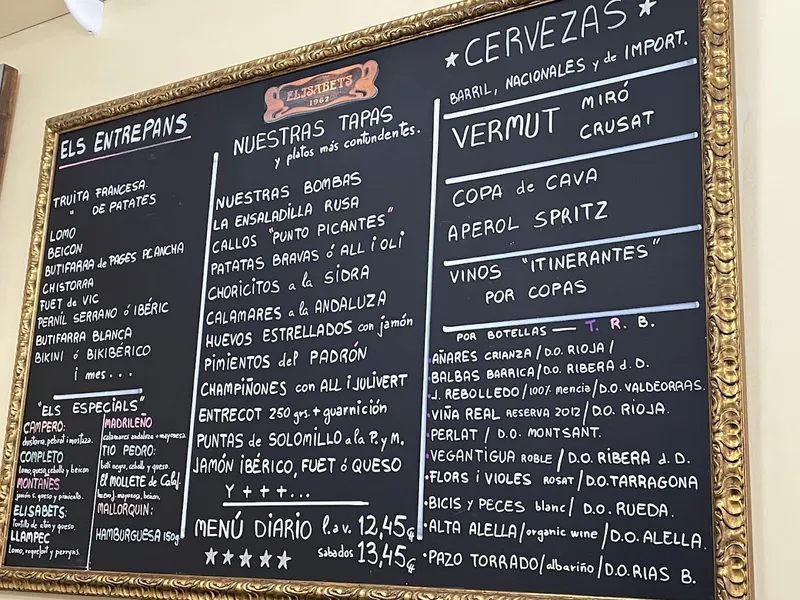 ELS ENTREPANS
TRUITA FRANCESA.
" DE PATATES
LOMO
BEICON
BUTIFARRA de PAGES PLANCHA
CHISTORRA
FUET de VIC
PERNIL SERRANO ó IBÈRIC
BUTIFARRA BLANCA
BIKINI ó BIKIBÉRICO
i mes...
"ELS ESPECIALS"
CAMPERO:
chistorra, pebrot i mostaza.
COMPLETO
lomo, queso, cebolla y beicon
MONTAÑES
jamón c. queso y pimiento.
ELISABETS:
tortilla de atún y queso.
LLAMPEC
Lomo, roquefort y
MADRILEÑO
calamares andaluza + mayonesa.
TIO PEDRO:
negra, cebolla y queso.
El MOLLETE de Calaf.
huevo, mayonesa, beicon.
MALLORQUIN:
HAMBURGUESA 150g
ELISABETS
1962
NUESTRAS TAPAS
y platos más contundentes.
NUESTRAS BOMBAS
LA ENSALADILLA RUSA
CALLOS "PUNTO PICANTES"
PATATAS BRAVAS ó ALL i OLI
CHORICITOS a la SIDRA
CALAMARES a la ANDALUZA
HUEVOS ESTRELLADOS con jamón
PIMIENTOS del PADRÓN
CHAMPIÑONES con ALL i JULIVERT
ENTRECOT 250 grs. + guarnición
PUNTAS de SOLOMILLO a la P. y M.
JAMÓN IBÉRICO, FUET ó QUESO
Y +++...
MENÚ DIARIO l. a v. 12,45€
sabados 13,45€
★★★★★
★ CERVEZAS ★
BARRIL, NACIONALES y de IMPORT.
VERMUT MIRÓ
CRUSAT
COPA de CAVA
APEROL SPRITZ
VINOS "ITINERANTES"
POR COPAS
POR BOTELLAS — T. R. B.
·AÑARES CRIANZA / D.O. RIOJA /
·BALBAS BARRICA / D.O. RIBERA d. D.
·J. REBOLLEDO / 100% mencia / D.O. VALDEORRAS.
·VIÑA REAL RESERVA 2012 / D.O. RIOJA.
·PERLAT / D.O. MONTSANT.
·VEGANTIGUA ROBLE / D.O. RIBERA d. D.
·FLORS i VIOLES ROSAT / D.O. TARRAGONA
·BICIS y PECES blanc / D.O. RUEDA.
·ALTA ALELLA / organic wine / D.O. ALELLA.
·PAZO TORRADO / albariño / D.O. RIAS B.